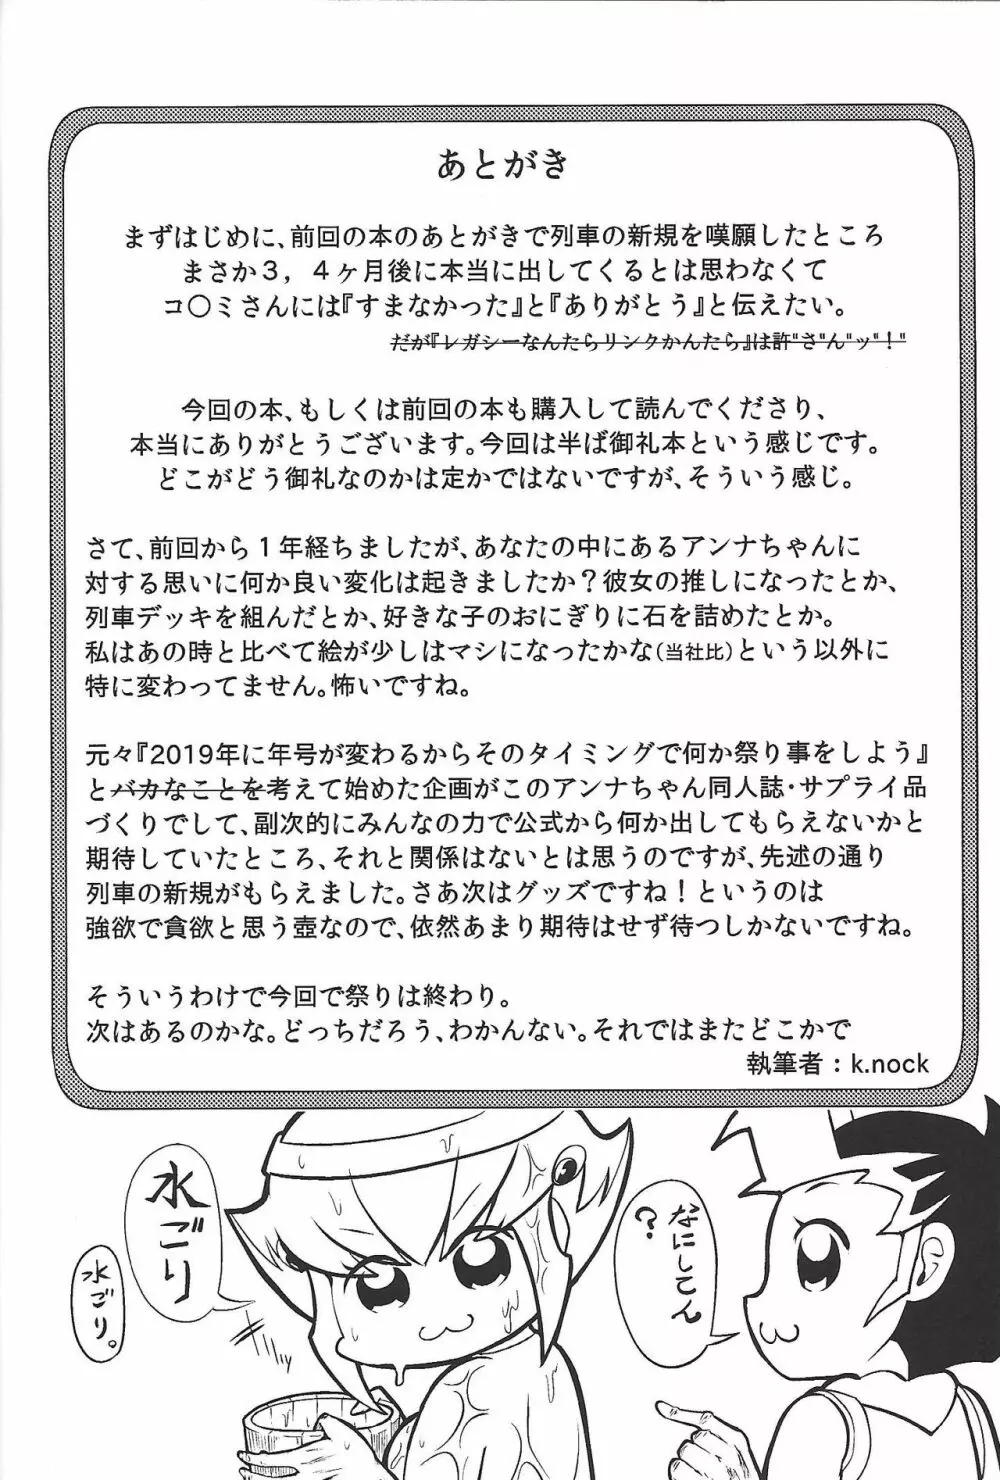 あとがき
まずはじめに、前回の本のあとがきで列車の新規を嘆願したところ
まさか３，４ヶ月後に本当に出してくるとは思わなくて
コ〇ミさんには『すまなかった』と『ありがとう』と伝えたい。
だが『レガシーなんたらリンクかんたら』は許"さ"ん"ッ"！"
今回の本、もしくは前回の本も購入して読んでくださり、
本当にありがとうございます。今回は半ば御礼本という感じです。
どこがどう御礼なのかは定かではないですが、そういう感じ。
さて、前回から１年経ちましたが、あなたの中にあるアンナちゃんに
対する思いに何か良い変化は起きましたか？彼女の推しになったとか、
列車デッキを組んだとか、好きな子のおにぎりに石を詰めたとか。
私はあの時と比べて絵が少しはマシになったかな（当社比）という以外に
特に変わってません。怖いですね。
元々『2019年に年号が変わるからそのタイミングで何か祭り事をしよう』
とバカなことを考えて始めた企画がこのアンナちゃん同人誌・サプライ品
づくりでして、副次的にみんなの力で公式から何か出してもらえないかと
期待していたところ、それと関係はないとは思うのですが、先述の通り
列車の新規がもらえました。さあ次はグッズですね！というのは
強欲で貪欲と思う壺なので、依然あまり期待はせず待つしかないですね。
そういうわけで今回で祭りは終わり。
次はあるのかな。どっちだろう、わかんない。それではまたどこかで
執筆者：k.nock
なにしてん
？
水ごり
水ごり。